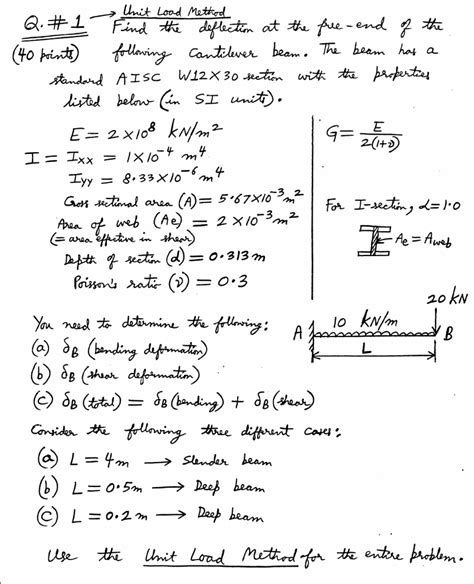 Q.#1 → Unit Load Method
(40 points) Find the deflection at the free-end of the
following Cantilever beam. The beam has a
standard AISC W12X30 section with the properties
listed below (in SI units).
E = 2×10⁸ kN/m²
I = Ixx = 1×10⁻⁴ m⁴
Iyy = 8.33×10⁻⁶ m⁴
Cross sectional area (A) = 5.67×10⁻³ m²
Area of web (Ae) = 2×10⁻³ m²
(= area effective in shear)
Depth of section (d) = 0.313 m
Poisson's ratio (ν) = 0.3
G = E / 2(1+ν)
For I-section, α = 1.0
Ae = Aweb
You need to determine the following:
(a) δB (bending deformation)
(b) δB (shear deformation)
(c) δB (total) = δB (bending) + δB (shear)
20 kN
10 kN/m
A B
L
Consider the following three different cases:
(a) L = 4m → Slender beam
(b) L = 0.5m → Deep beam
(c) L = 0.2m → Deep beam
Use the Unit Load Method for the entire problem.